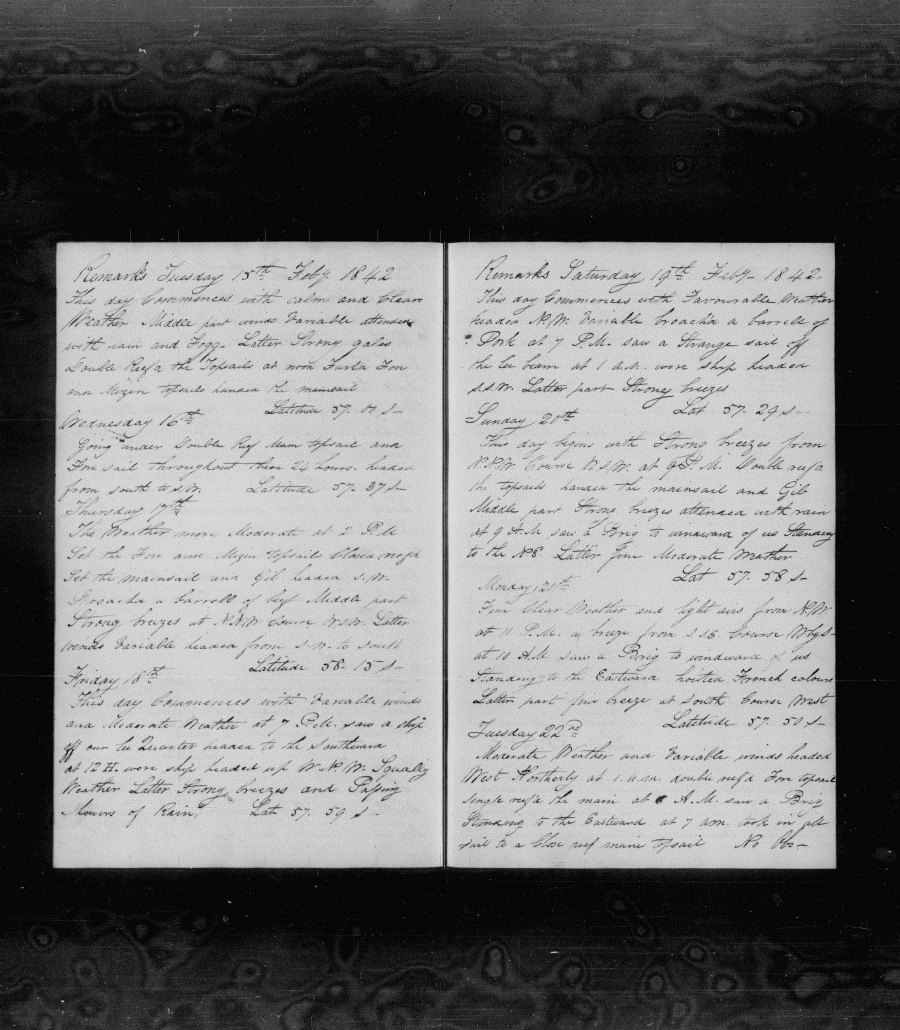 Remarks Tuesday 15th Feby 1842
This day Commences with calm and Clear
Weather Middle part winds Variable attended
with rain and Fogg. Latter Strong gales
Double Reefd the Topsails at noon Furld Fore
and Mizen topsails handed the mainsail
Latitude 57.. S
Wednesday 16th
Going under Double Reef Main topsail and
Fore sail throughout these 24 hours. headed
from south to S.W. Latitude 57.. 37 S
Thursday 17th
The Weather more Moderate at 2 P.M
Set the Fore and Mizen topsail Close reefd
Set the mainsail and Gib headed S.W.
Broachd a barrell of beef Middle part
Strong breezes at N.N.W Course W.S.W. Latter
winds Variable headed from S.W. to South
Latitude 58.. 15 S
Friday 18th
This day Commences with Variable winds
and Moderate Weather at 7 P.M. saw a ship
off our lee Quarter headed to the Southward
at 12 H. wore ship headed up W.N.W. Squally
Weather Latter Strong breezes and Passing
Showers of Rain, Lat 57.. 59 S
Remarks Saturday 19th Feby 1842.
This day Commences with Favourable Weather
headed N.W. Variable broachd a barrell of
Pork at 7 P.M. saw a Strange sail off
the lee beam at 1 A.M. wore ship headed
S.S.W. Latter part Strong breezes
Lat 57.. 29 S
Sunday 20th
This day begins with Strong breezes from
N.N.W. Course W.S.W. at 9 P.M. Double reefd
the topsails handed the mainsail and Gib
Middle part Strong breezes attended with rain
at 9 A.M saw a Brig to windward of us Standing
to the NE Latter fine Moderate Weather
Lat 57.. 58 S
Monday 21st
Fine Clear Weather and light airs from N.W
at 11 P.M. a breeze from S.S.E. Course W by S
at 10 A.M saw a Brig to windward of us
Standing to the Eastward hoisted French colours
Latter part fine breeze at South Course West
Latitude 57.. S
Tuesday 22nd
Moderate Weather and Variable winds headed
West Northerly at 1. a.m. double reefd Fore topsail
single reefd the main at A.M. saw a Brig
Standing to the Eastward at 7 am. took in all
sail to a Close reef main topsail No Obs